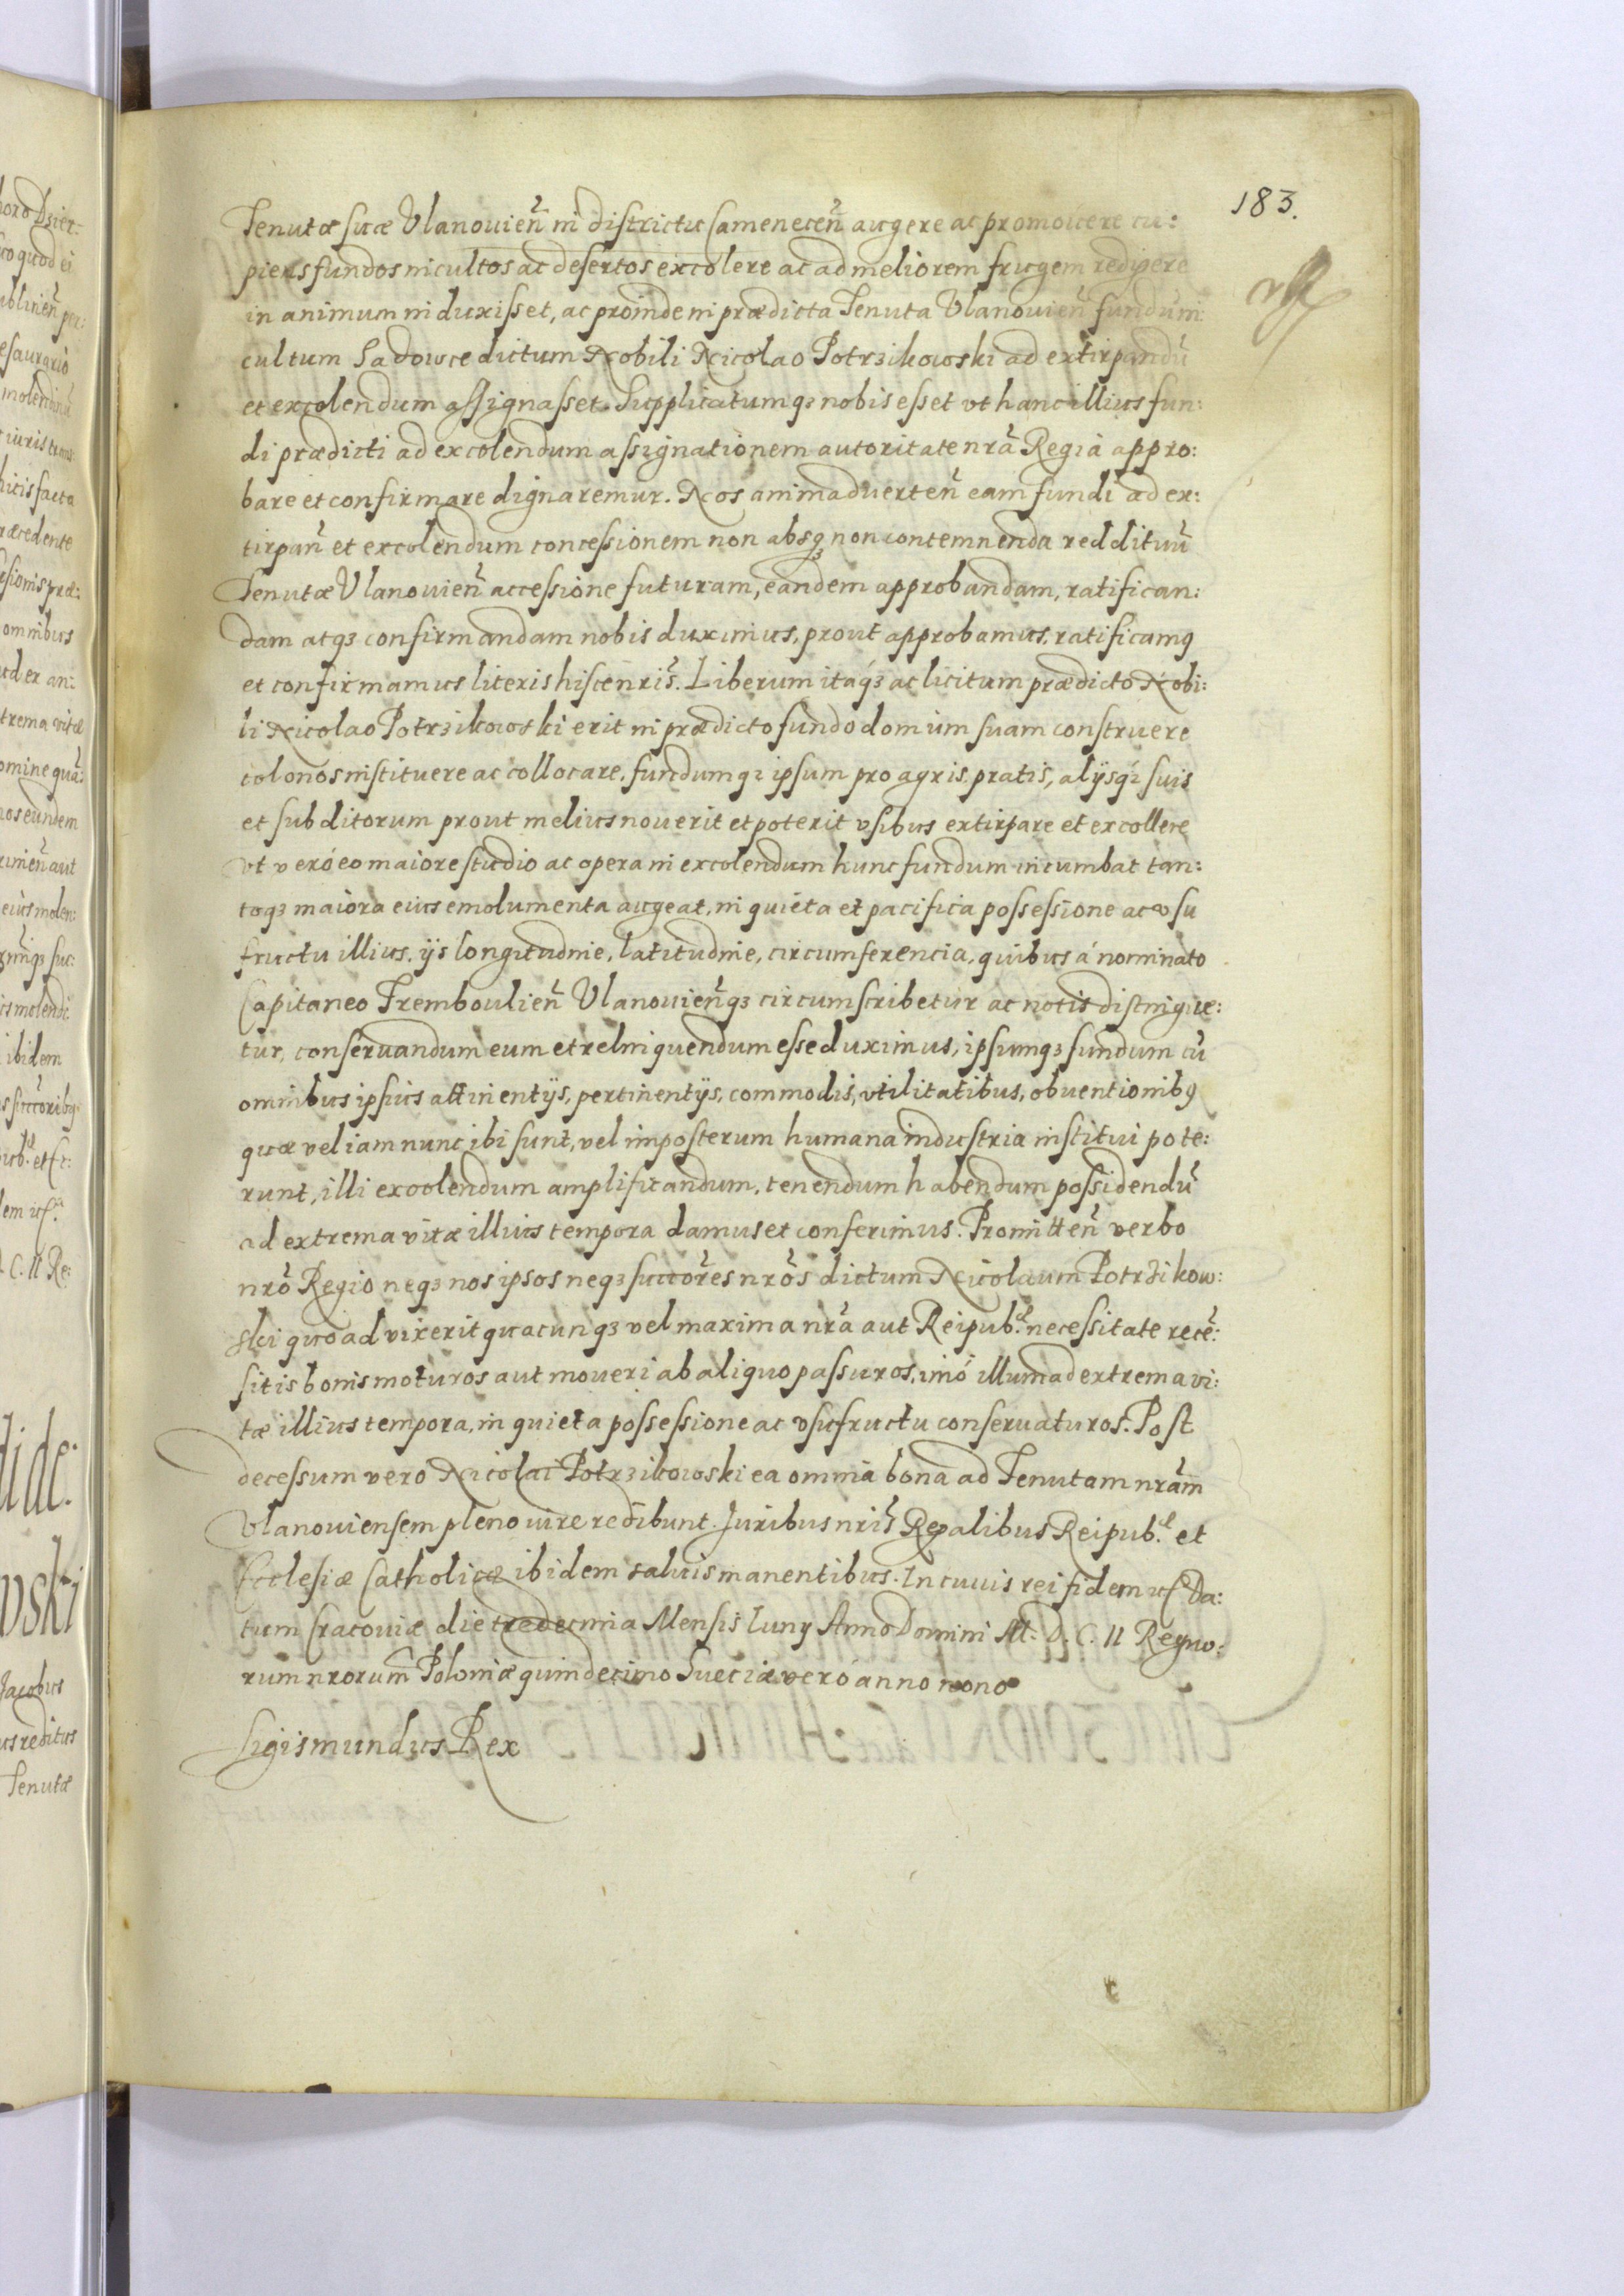 183.
Tenutæ suæ Vlanouień in districtu Camenecen̄ augere ac promouere cu:
piens fundos incultos ac desertos excolere ac ad meliorem frugem redigere
in animum induxisset, ac proinde in prædicta Tenuta Vlanouień fundum in:
cultum Sadowce dictum Nobili Nicolao Potrzikowski ad extirpandū
et excolendum assignasset. Supplicatumqȝ nobis esset vt hanc illius fun:
di prædicti ad excolendum assignationem autoritate nrā Regia appro:
bare et confirmare dignaremur. Nos animaduerten̄ eam fundi ad ex:
tirpan̄ et excolendum concessionem non absqȝ non contemnenda reddituū
Tenutæ Vlanouień accessione futuram, eandem approbandam, ratifican:
dam atqȝ confirmandam nobis duximus, prout approbamus, ratificamꝯ
et confirmamus literis hisce nrīs. Liberum itaqȝ ac licitum prædicto Nobi:
li Nicolao Potrzikowski erit in prædicto fundo domum suam construere
colonos instituere ac collocare, fundumqȝ ipsum pro agris, pratis, alijsqȝ suis
et subditorum prout melius nouerit et poterit vsibus extirpare et excollere
vt veró eo maiore studio ac opera in excolendum hunc fundum incumbat tan:
toqȝ maiora eius emolumenta augeat, in quieta et pacifica possessione ac vsu
fructu illius, ijs longitudine, latitudine, circumferencia, quibus á nominato
Capitaneo Trembouliēn Vlanouieńqȝ circumscribetur ac notis distingue:
tur, conseruandum eum et relinquendum esse duximus, ipsumqȝ fundum cū
omnibus ipsius attinentijs, pertinentijs, commodis, vtilitatibus, obuentionibꝯ
quæ vel iam nunc ibi sunt, vel imposterum humana industria institui pote:
runt, illi excolendum amplificandum, tenendum habendum possidendū
ad extrema vitæ illius tempora damus et conferimus. Promitten̄ verbo
nrō Regio neqȝ nos ipsos neqȝ succōres nrōs dictum Nicolaum Potrzikow:
ski quoad vixerit quacunqȝ vel maxima nrā aut Reipub.cæ necessitate recē:
sitis bonis moturos aut moueri ab aliquo passuros, imó illum ad extrema vi:
tæ illius tempora, in quieta possessione ac vsufructu conseruaturos. Post
decessum vero Nicolai Potrzikowski ea omnia bona ad Tenutam nrām
Vlanouiensem pleno iure redibunt. Juribus nrīs Regalibus Reipub.cæ et
Ecclesiæ Catholicæ ibidem saluis manentibus. In cuius rei fidem Da:
tum Cracouiæ die tredecima Mensis Iunij Anno Domini M. D. C. II Regno:
rum nrorum̄ Poloniæ quindecimo Sueciæ veró anno nono
Sigismundus Rex